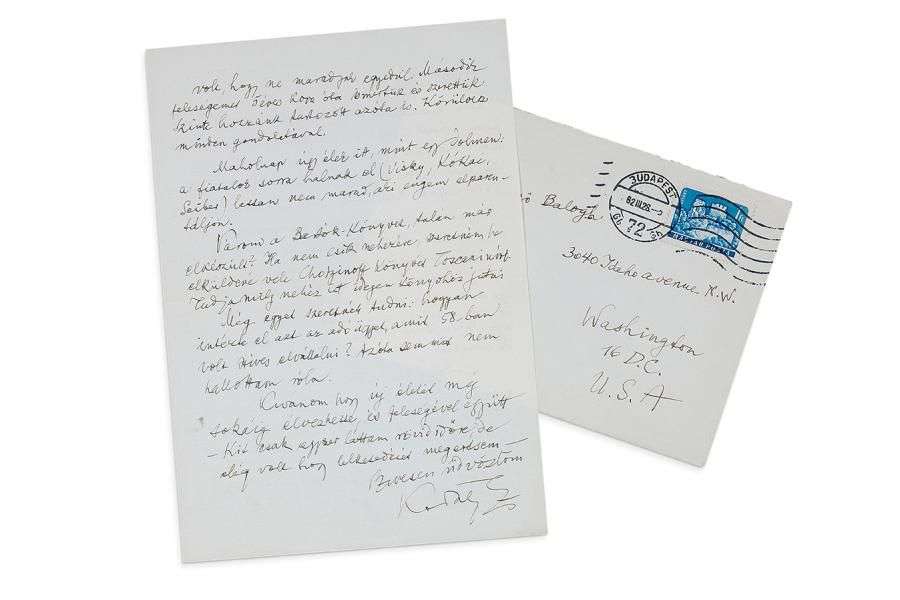 volt, hogy ne maradjak egyedül. Második
feleségemet 3éves kora óta ismertük és szerettük
szinte hozzánk tartozott azóta is. Körülvesz
minden gondolatával.
Maholnap úgy élek itt, mint egy dolmen:
a fiatalok sorra halnak el (Visky, Kókai,
Seiber) lassan nem marad, aki engem elparen-
táljon.
Várom a Bartók-Könyvet, talán már
elkészült? Ha nem esik nehezére szeretném, ha
elküldene vele Chotzinoff könyvét Toscaniniről.
Tudja mily nehéz itt idegen könyvhöz jutni
Még egyet szeretnék tudni: hogyan
intézte el azt az adóügyet, amit 58.ban
volt szíves elvállalni? Azóta sem már nem
hallottam róla.
Kivánom hogy új életét még
sokáig élvezhesse, és feleségével együtt
– Kit csak egyszer láttam rövid időre, de
elég volt hogy lelkesedését megértsem –
Szivesen üdvözlöm
Kodály Z
BUDAPEST
72
Balogh
MAGYAR POSTA
3040 Idaho avenue N.W.
Washington
16 D.C.
U.S.A